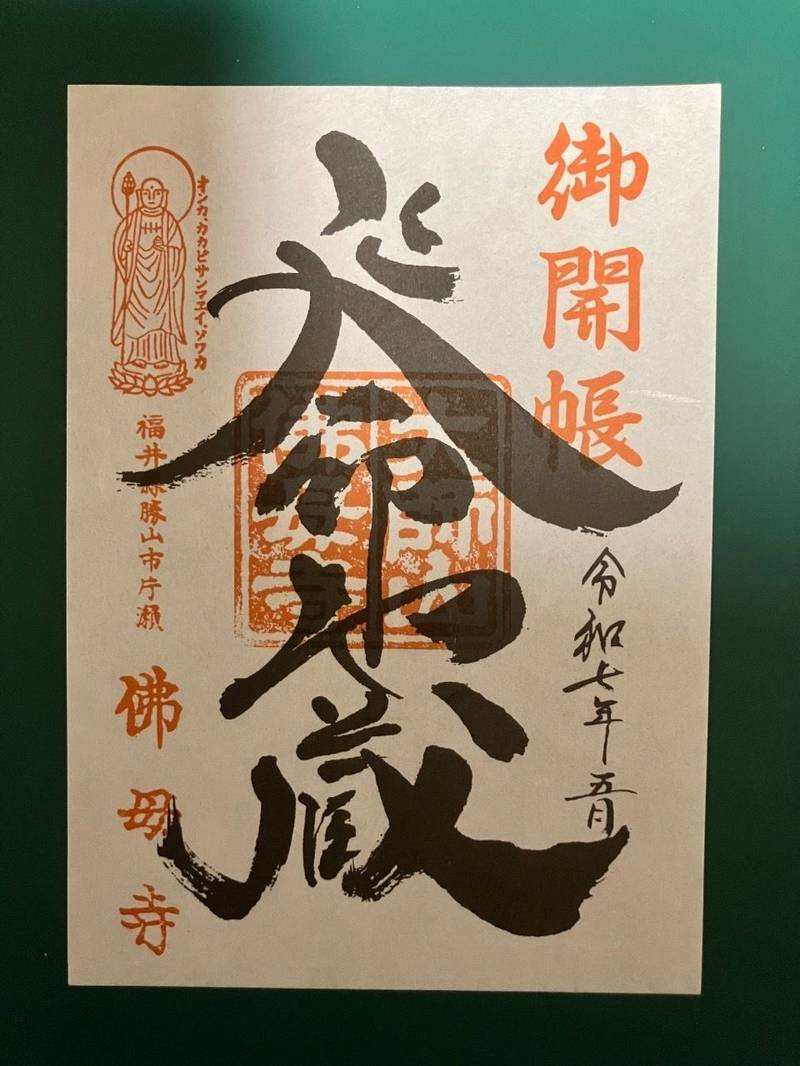 御開帳
令和七年五月
延命地蔵
大師山
佛母寺
オンカ、カカビサンマエイ、ソワカ
福井縣勝山市片瀬
佛母寺